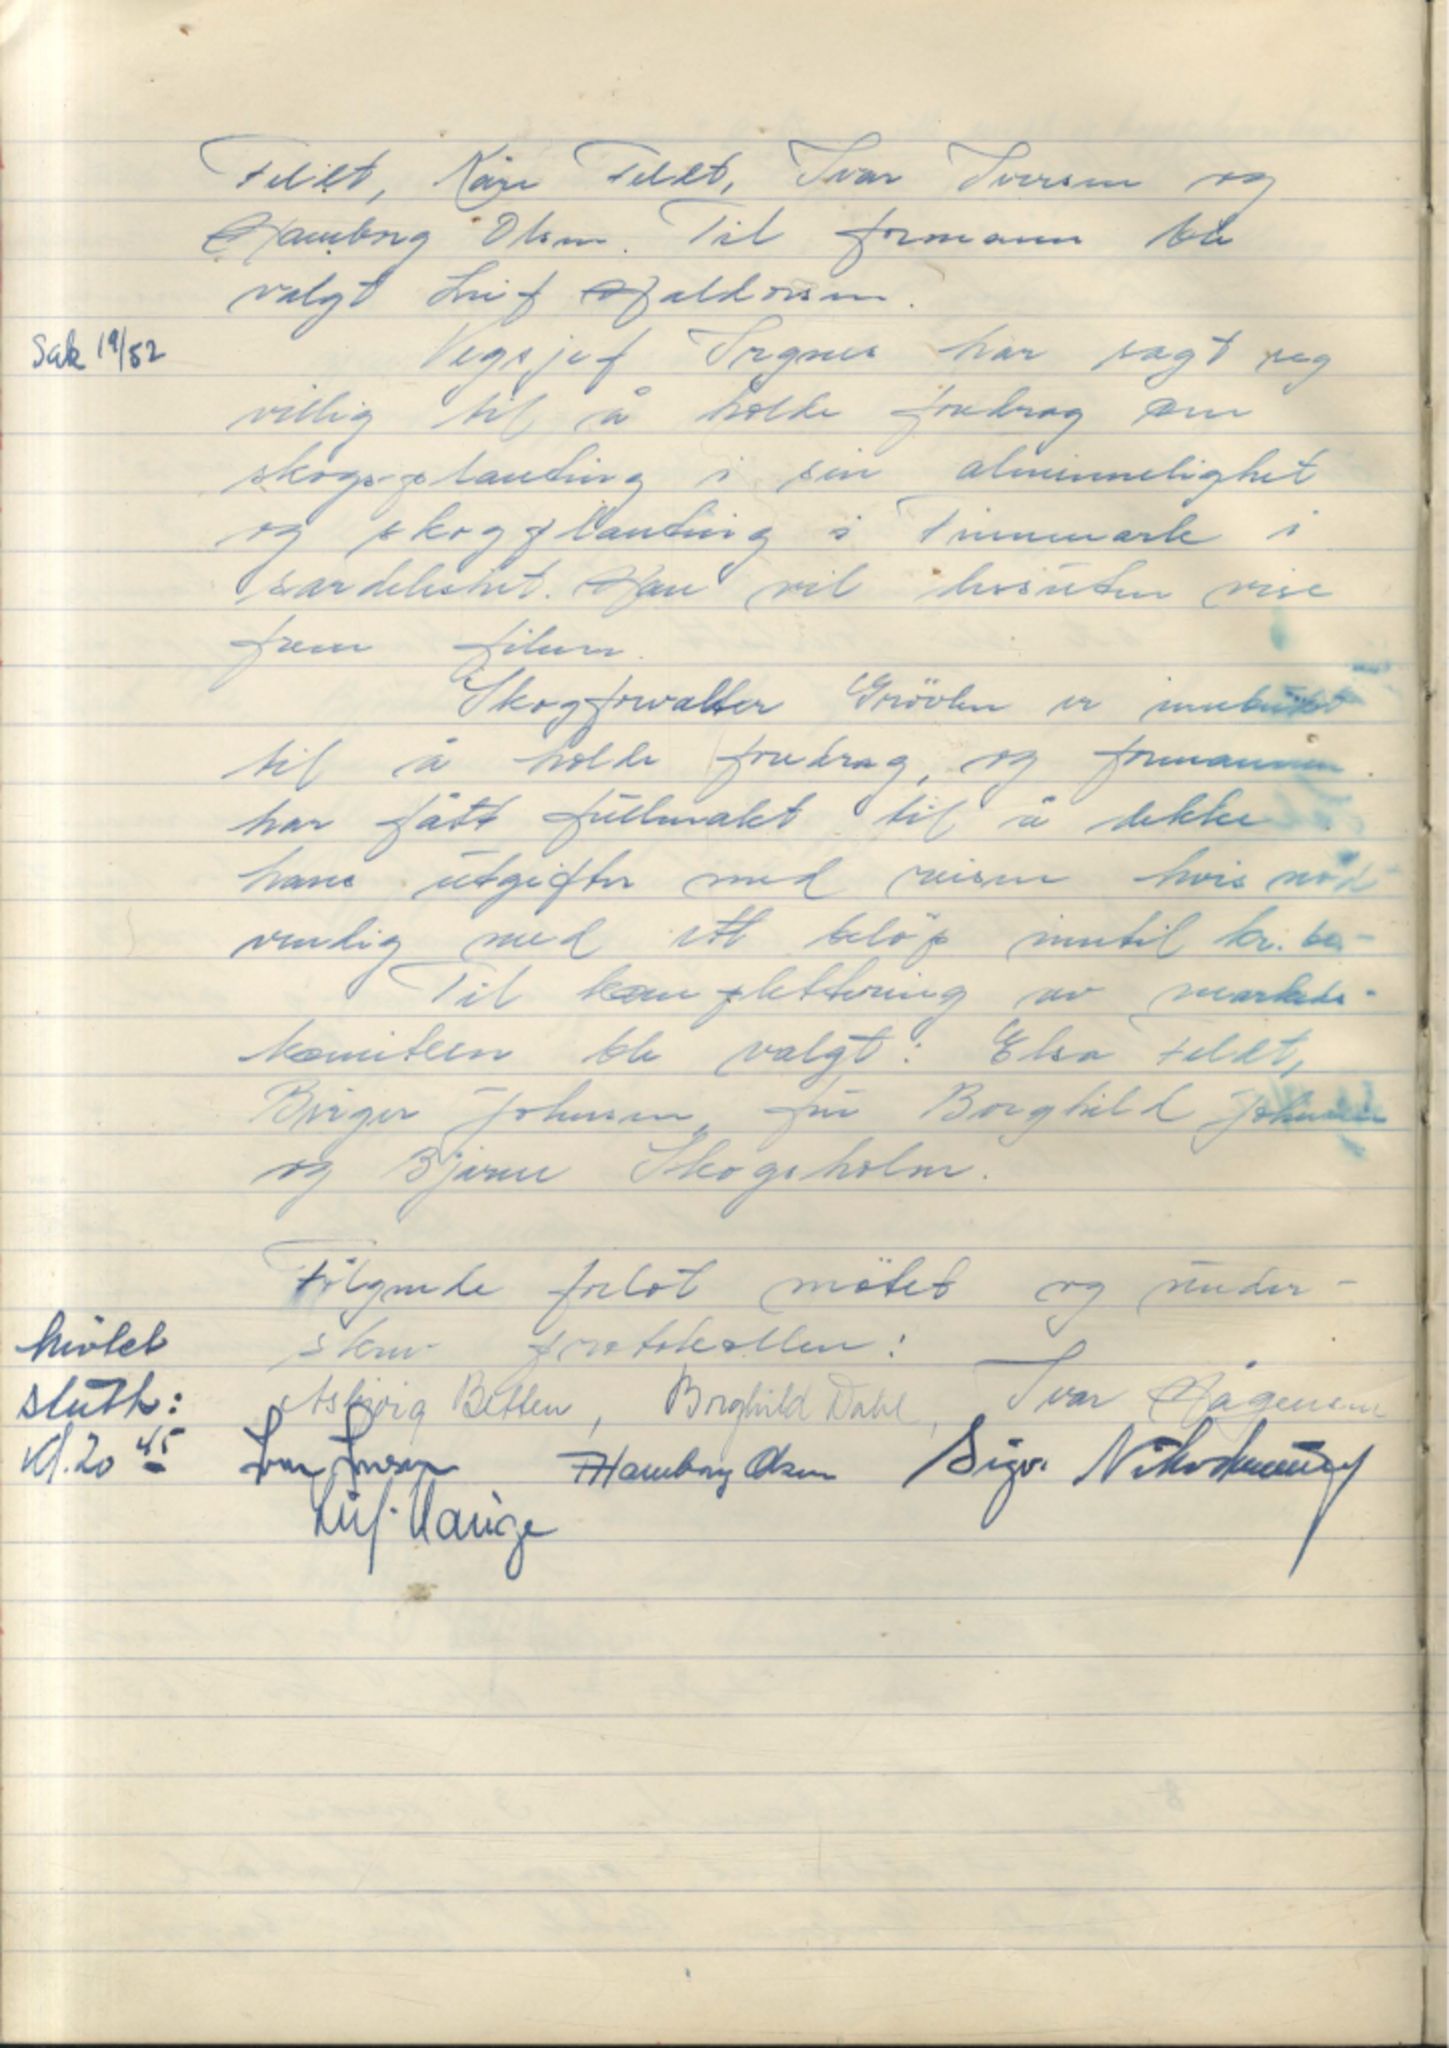 Feldt, Kåre Feldt, Ivar Iversen og
Hamborg Olsen. Til formann ble
valgt Leif Haldorsen.
Sak 19/52 Vegsjef har sagt seg
villig til å holde foredrag om
skogsplanting i sin alminnelighet
og skogplanting i Finnmark i
særdeleshet. Han vil dessuten vise
frem filmer.
Skogforvalter Grövlen er innbudt
til å holde foredrag, og formannen
har fått fullmakt til å dekke
hans utgifter med reisen hvis nöd-
vendig med ett belöp inntil kr.
Til komplettering av markeds-
komiteen ble valgt: Elsa Feldt,
Birger Johnsen, fru Borghild Johnsen
og Bjarne Skogsholm.
Fölgende forlot mötet og under-
skrev protokollen:
Mötet
slutt:
kl. 20 45
Asbjörg Betten, Borghild Dahl, Ivar Hågensen
Ivar Iversen Hamborg Olsen Sigv. Nikodemussen
Leif Hauge